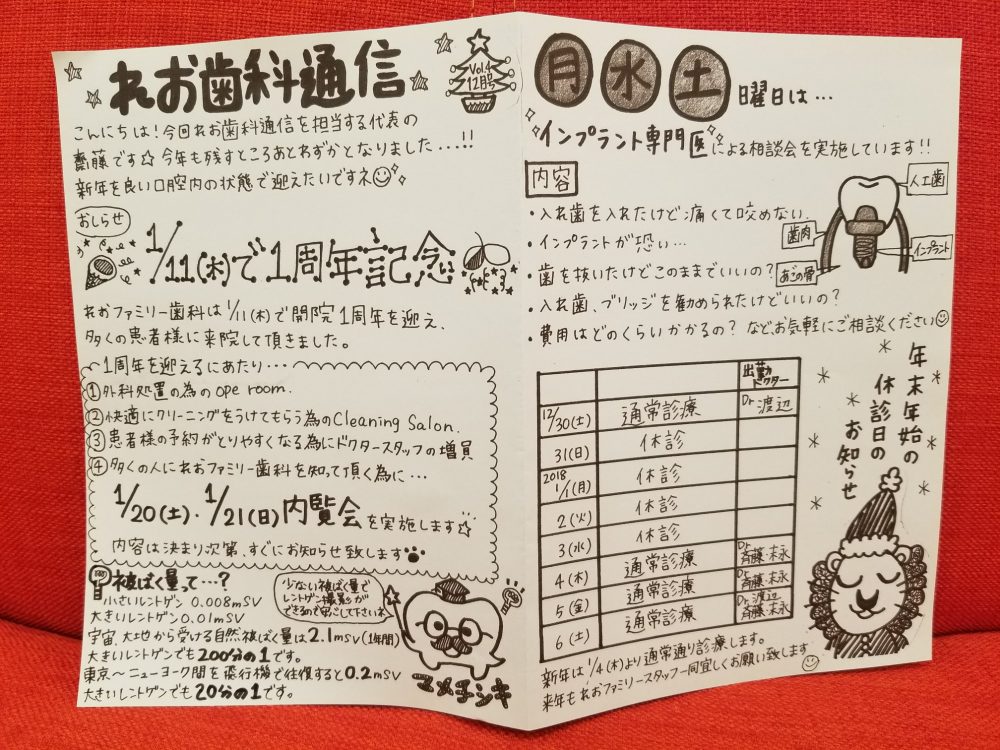 れお歯科通信
Vol.4
12月号
こんにちは！今回れお歯科通信を担当する代表の
齋藤です☆今年も残すところあとわずかとなりました...!!
新年を良い口腔内の状態で迎えたいですネ
おしらせ
1/11(木)で1周年記念
れおファミリー歯科は1/11(木)で開院1周年を迎え、
多くの患者様に来院して頂きました。
1周年を迎えるにあたり...
①外科処置の為のope room.
②快適にクリーニングをうけてもらう為のCleaning Salon.
③患者様の予約がとりやすくなる為にドクタースタッフの増員
④多くの人にれおファミリー歯科を知って頂く為に...
1/20(土)・1/21(日)内覧会を実施します☆
内容は決まり次第、すぐにお知らせ致します
被ばく量って...?
小さいレントゲン 0.008mSV
大きいレントゲン0.01mSV
宇宙、大地から受ける自然被ばく量は2.1mSV(1年間)
大きいレントゲンでも200分の1です。
東京～ニューヨーク間を飛行機で往復すると0.2mSV
大きいレントゲンでも20分の1です。
少ない被ばく量で
レントゲン撮影が
できるので安心して下さいネ
マメチシキ
月 水 土 曜日は...
インプラント専門医による相談会を実施しています!!
内容
・入れ歯を入れたけど痛くて咬めない.
・インプラントが恐い...
・歯を抜いたけどこのままでいいの？
・入れ歯、ブリッジを勧められたけどいいの？
・費用はどのくらいかかるの？など、お気軽にご相談ください
人工歯
歯肉
インプラント
あごの骨
出勤
ドクター
12/30(土) 通常診療 Dr 渡辺
31(日) 休診
2018
1/1(月) 休診
2(火) 休診
3(水) 休診
4(木) 通常診療 Dr 斉藤 末永
5(金) 通常診療 Dr 斉藤 末永
6(土) 通常診療 Dr 渡辺 斉藤 末永
年末年始の
休診日の
お知らせ
新年は1/4(木)より通常通り診療します。
来年もれおファミリースタッフ一同宜しくお願い致します